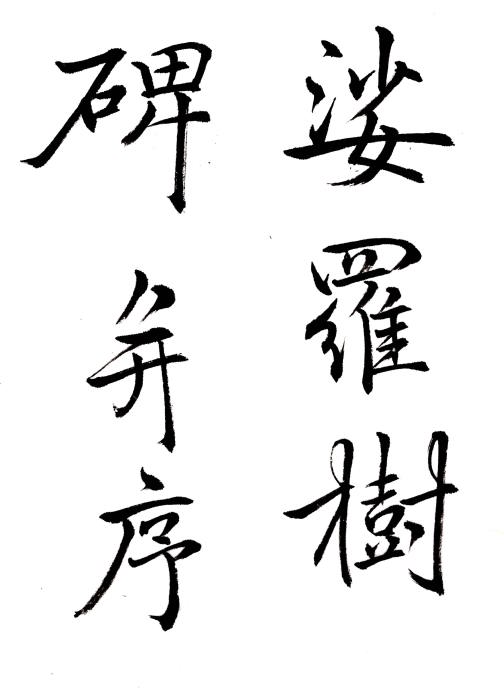 娑羅樹
碑并序